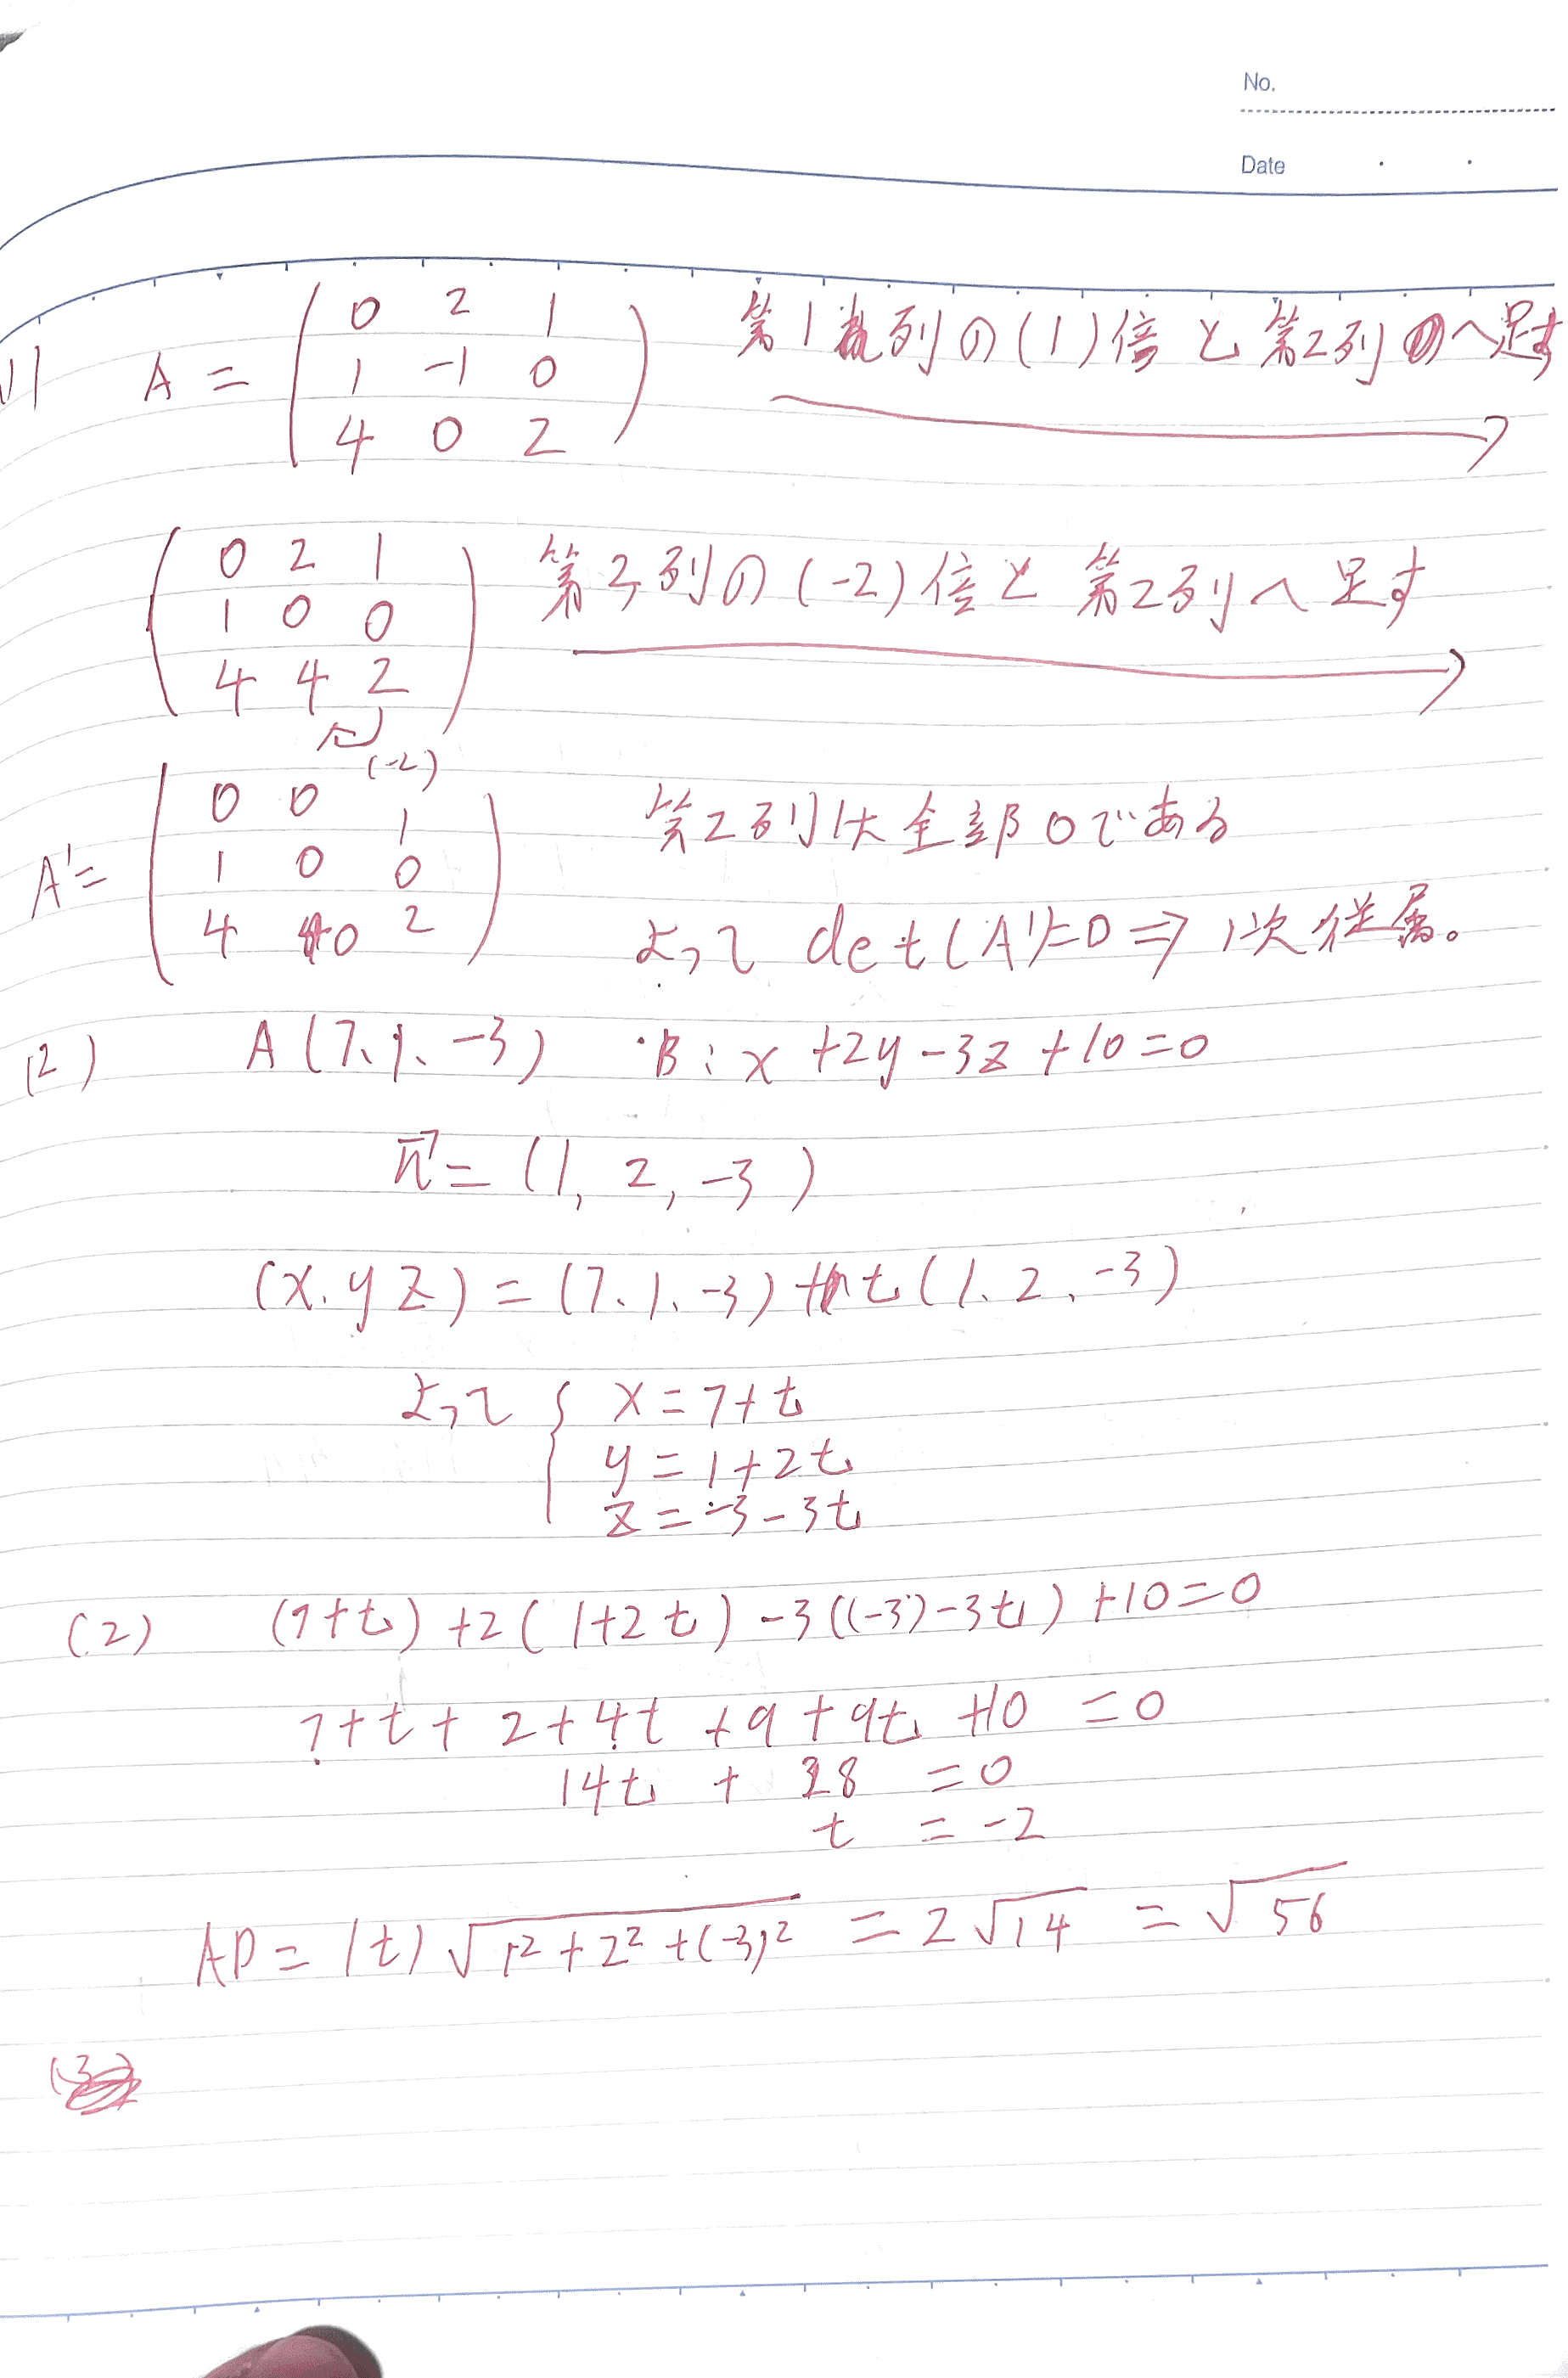 No.
Date
(1) A = ( 0 2 1 第1列の(1)倍と第2列へ足す
1 -1 0
4 0 2 )
( 0 2 1 第3列の(-2)倍と第2列へ足す
1 0 0
4 4 2 )
(-2)
A'= ( 0 0 1 第2列は全部0である
1 0 0
4 0 2 ) よって det(A')=0 ⇒ 1次従属。
(2) A(7、1、-3) ・B: x+2y-3z+10=0
n⃗ = (1, 2, -3)
(x. y z) = (7、1、-3) + t(1、2、-3)
よって { x = 7+t
y = 1+2t
z = -3-3t
(2) (7+t)+2(1+2t)-3((-3)-3t)+10=0
7+t+2+4t+9+9t+10 = 0
14t + 28 = 0
t = -2
AP = |t|√(1²+2²+(-3)²) = 2√14 = √56